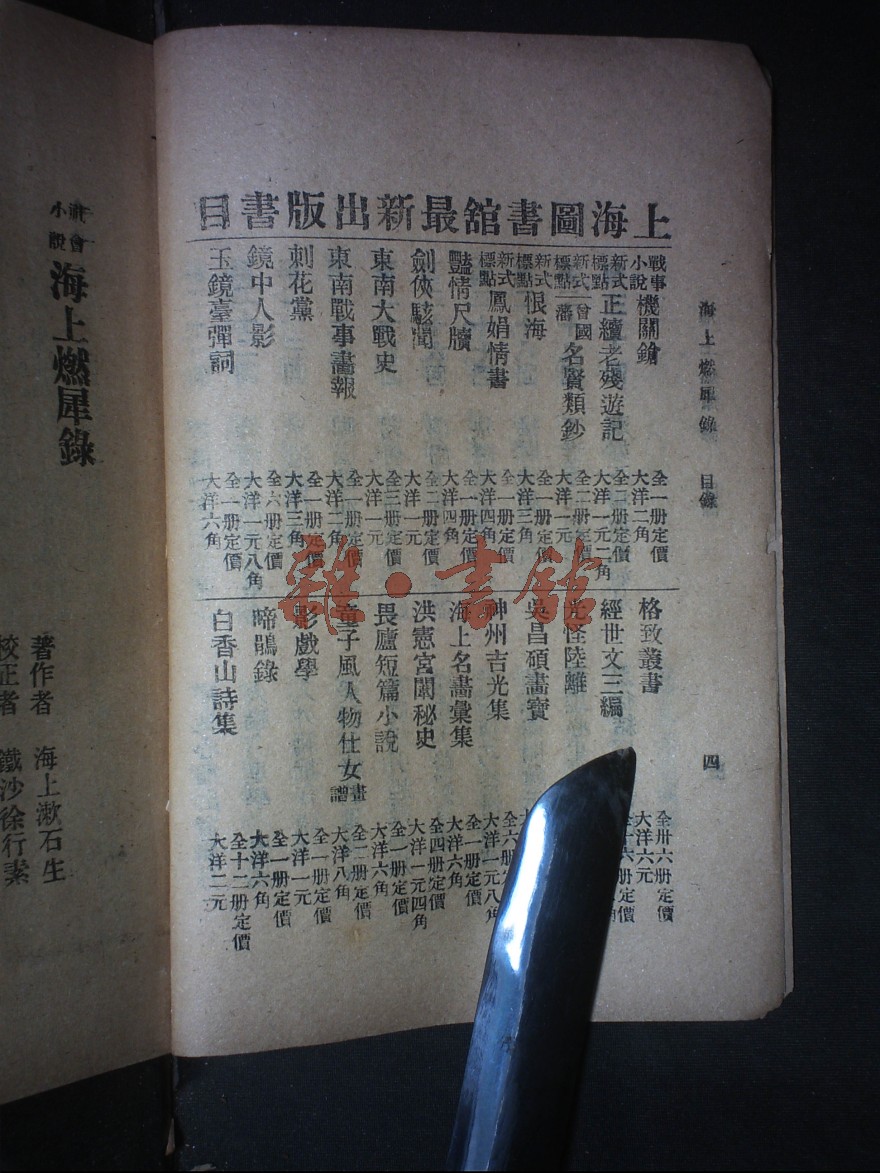 上海圖書館最新出版書目
海上燃犀錄 目錄 四
戰事小說 機關鎗 全一册定價 大洋二角
新式標點 正續老殘遊記 全二册定價 大洋一元二角
新式標點 曾國藩 名賢類鈔 全二册定價 大洋一元
新式標點 恨海 全一册定價 大洋三角
新式標點 鳳娟情書 全一册定價 大洋四角
豔情尺牘 全一册定價 大洋四角
劍俠駭聞 全二册定價 大洋一元
東南大戰史 全三册定價 大洋一元
東南戰事畫報 全一册定價 大洋二角
刺花黨 全一册定價 大洋三角
鏡中人影 全六册定價 大洋一元八角
玉鏡臺彈詞 全一册定價 大洋六角
格致叢書 全卅六册定價 大洋六元
經世文三編 十六册定價 角
光怪陸離
吳昌碩畫寶
神州吉光集 全六册定 大洋一元八角
海上名畫彙集 定價 大洋六角
洪憲宮闈秘史 全四册定價 大洋一元四角
畏廬短篇小說 全一册定價 大洋六角
童子風人物仕女畫譜 全二册定價 大洋八角
影戲學 全一册定價 大洋一元
啼鵑錄 全一册定價 大洋六角
白香山詩集 全十二册定價 大洋二元
雜·書館
社會小說 海上燃犀錄
著作者 海上漱石生
校正者 鐵沙徐行素